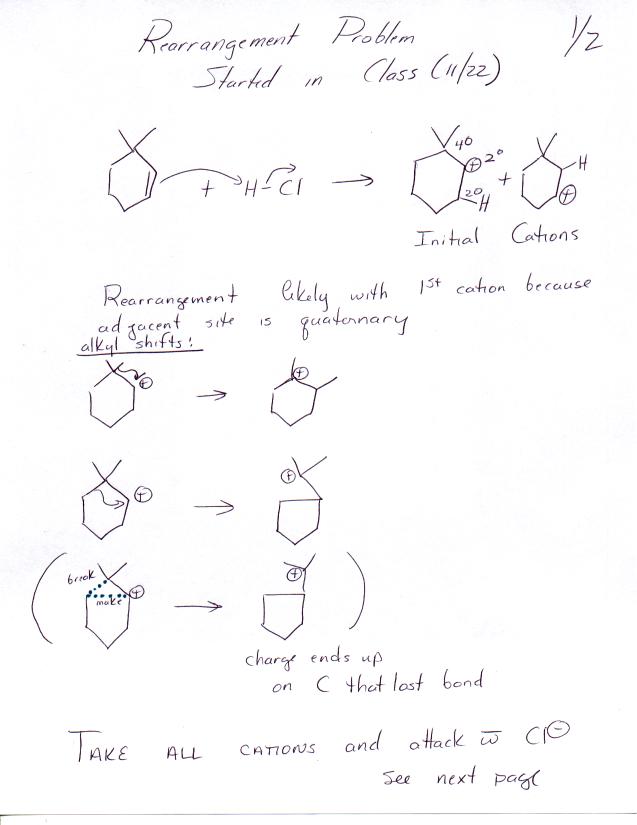 Rearrangement Problem 1/2
Started in Class (11/22)
4°
⊕ 2°
+ H-Cl → + H
2°
H ⊕
Initial Cations
Rearrangement likely with 1st cation because
adjacent site is quaternary
alkyl shifts:
⊕ → ⊕
⊕ → ⊕
break
⊕ → ⊕
make
charge ends up
on C that lost bond
TAKE ALL CATIONS and attack w̅ Cl⊖
See next page